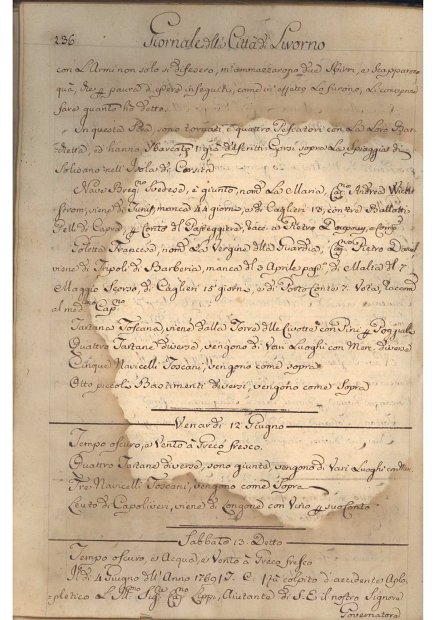 236 Giornale della Città di Livorno
con L'Armi non solo si difesero, m'ammazzarono due Sbirri, e scapparono
quà, che p paura d'essere inseguiti, come in effetto Lo furono, Le convenne
fare quanto hò detto.
In questa Sera sono tornati e quattro Pescatori con La Loro
ed hanno Sbarcato i già descritti Corsi sopra La Spiaggia di
nell'Isola di Corsica
Nave Svedese, è giunto, nom La Maria, Cap.no Andrea
viene di Tunis manca 44 giorni, e di Caglieri 18, con tre Ballotti
Pelli di Capra, p Conto del Passeggiero, racc. a Pietro
Goletta Francesa, nom La Vergine della Guardia, Cap.no Pietro
viene di Tripoli di Barberia, manca del 3 Aprile pass. di Malta del 7
Maggio Scorso, di Caglieri 15 giorni, e di Porto Conte 7. Vota, raccom
al med. Cap.no
Tartana Toscana, viene dalla Torre delle Civette con Pini p
Quattro Tartane diverse, vengono di Vari Luoghi con Merc. diverse
Cinque Navicelli Toscani, vengono come sopra
Otto piccoli Bastimenti diversi, vengono come Sopra
Venardì 12 Giugno
Tempo oscuro, e Vento à Greco fresco.
Quattro Tartane diverse, sono giunte, vengono di Vari Luoghi con Mer.
Tre Navicelli Toscani, vengono come Sopra
Leuto di Capoliveri, viene di Longone con Vino p suo Conto
Sabbato 13. Detto
Tempo oscuro, e Acqua, e Vento à Greco fresco
Il dì 4 Giugno dell'Anno 1769 colpito d'accidente Aplo-
pletico L'Ill.mo Sig.re Cap.no Lippi, Aiutante di S. E. il nostro Signore
Governatore